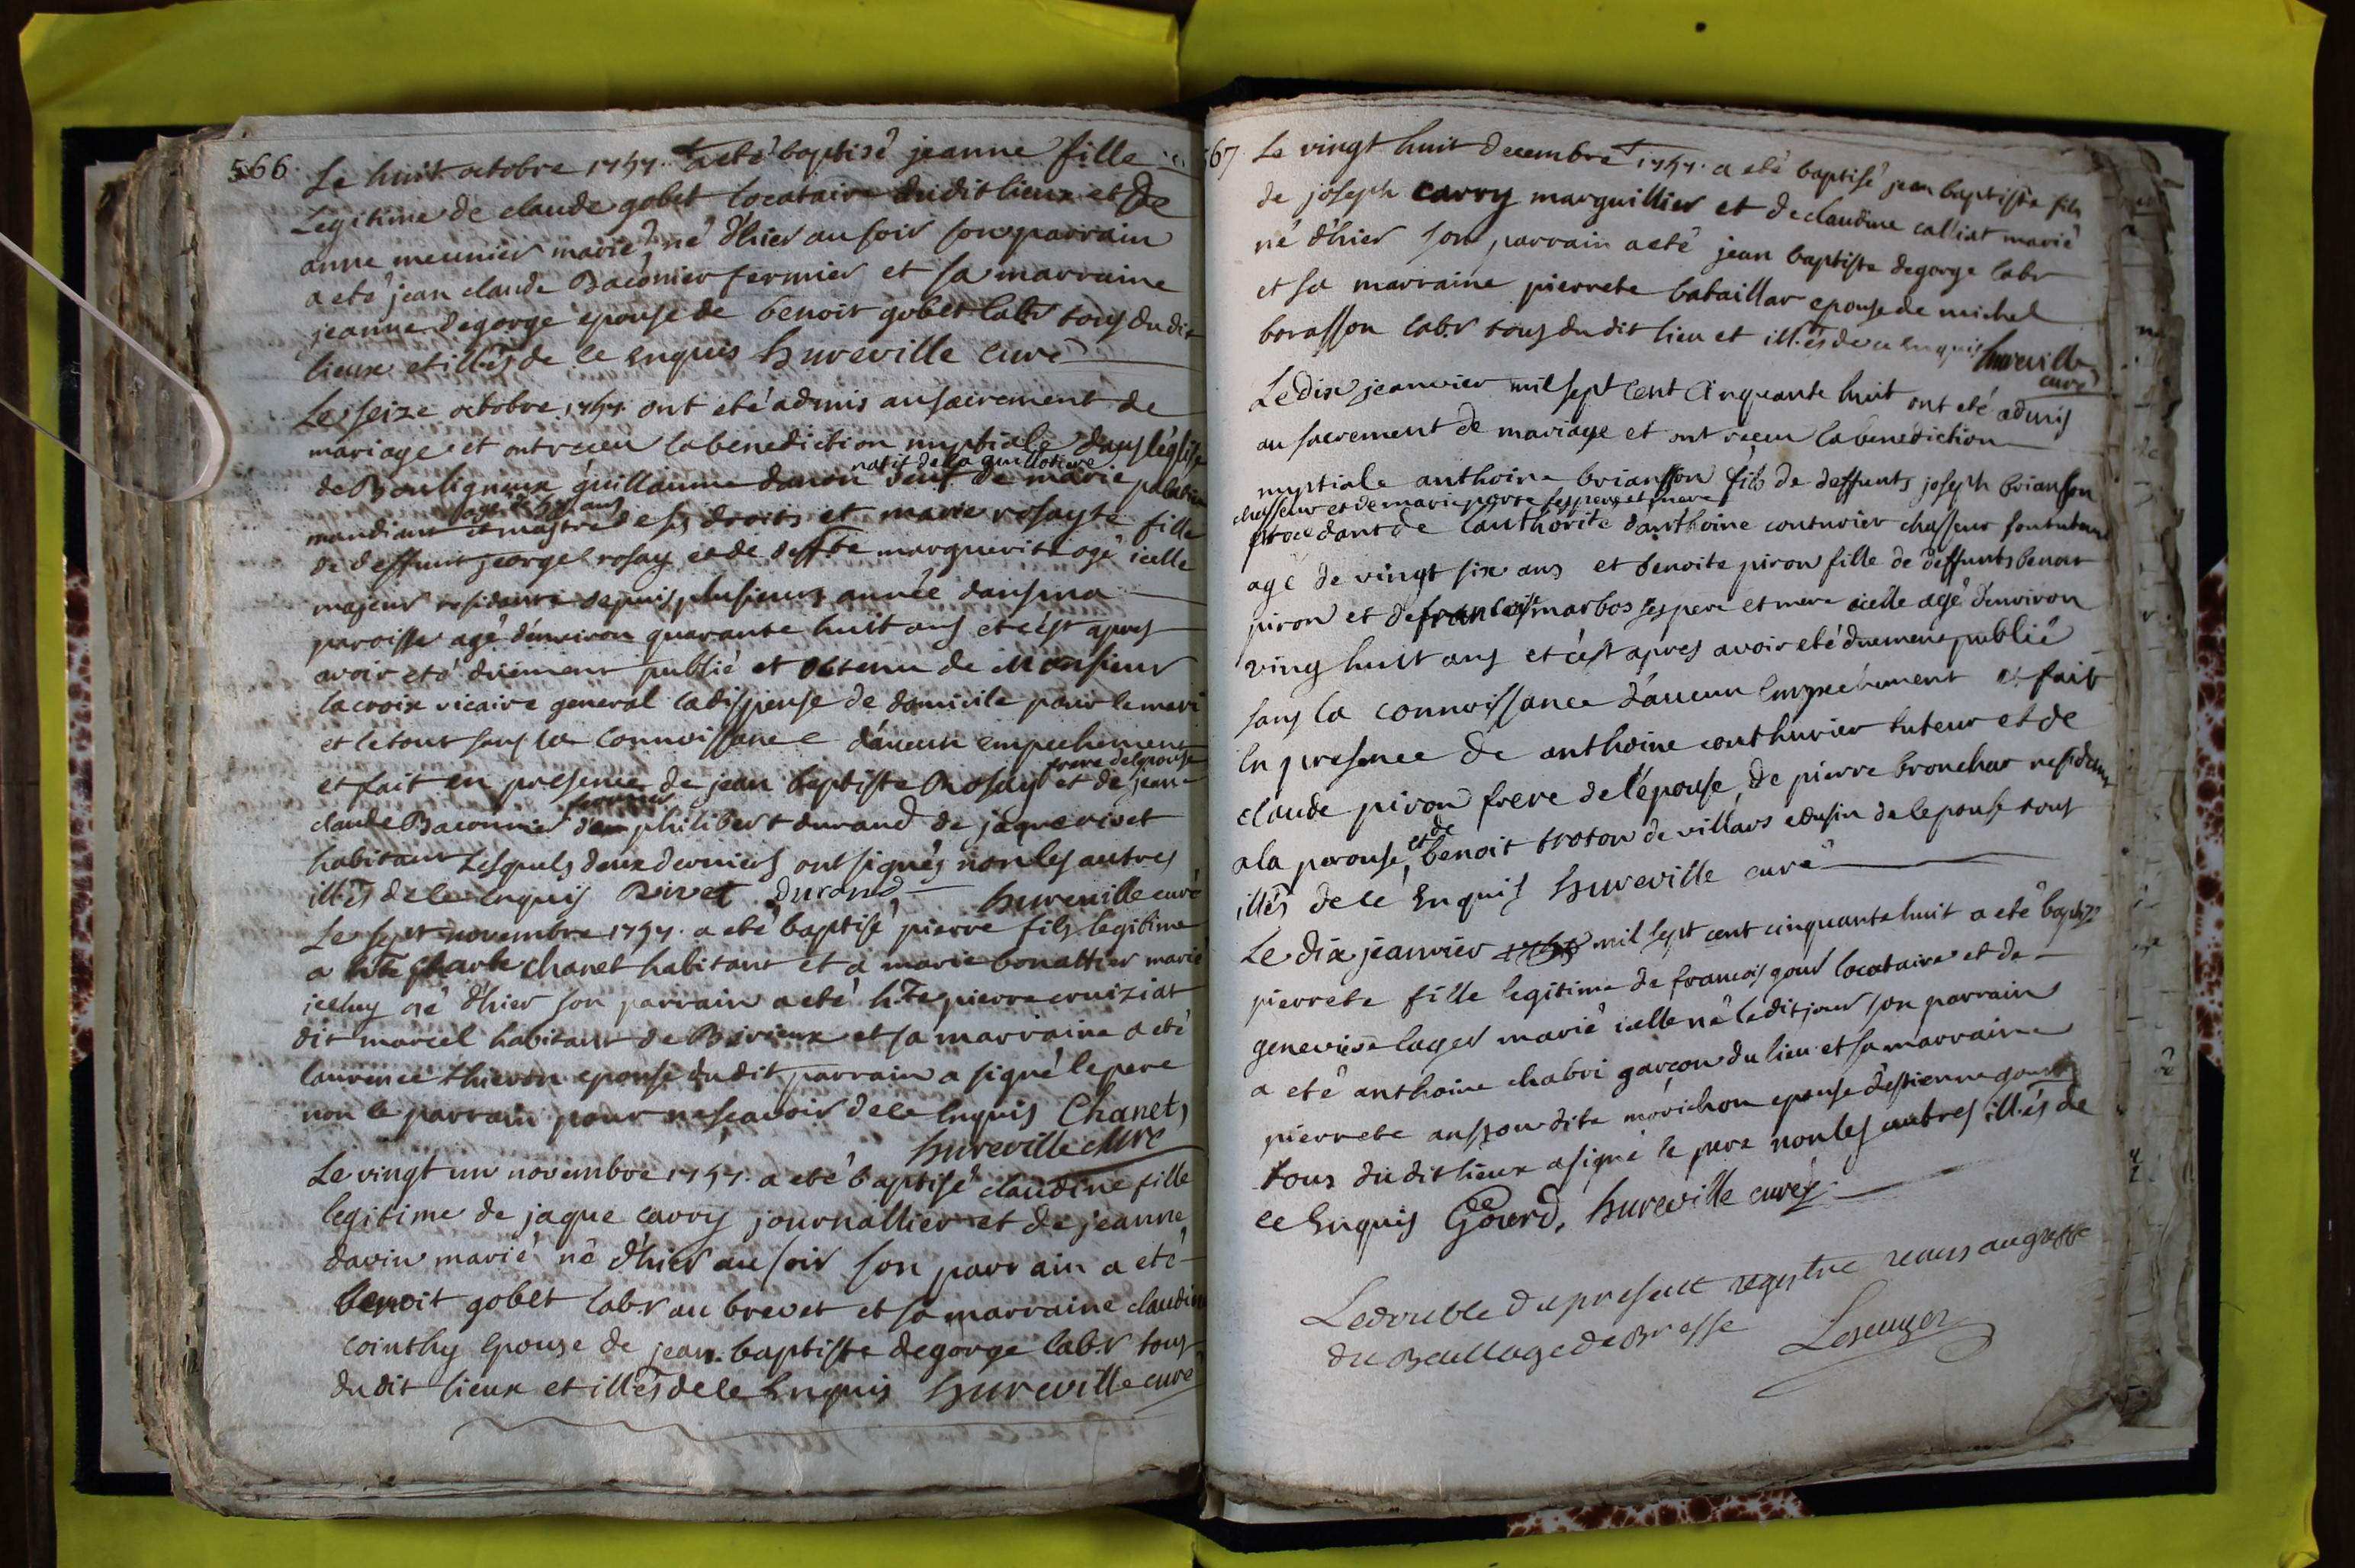 566
Le huit octobre 1757. a eté baptisé jeanne fille
Legitime de claude gobet locataire dudit lieux et de
anne meunier marié, né d'hier au soir son parrain
a eté jean claude Baconier fermier et sa marraine
jeanne degorge epouse de benoit gobet labr tous du dit
lieux et illes de ce enquis hureville curé
Le seize octobre 1757. ont eté admis au sairement de
mariage et ont receu la benediction nuptiale dans léglise
natif de la guillotiere
de Bouligneux guillaume danon veuf de marie
mandiant et maitre de ses droits et marie rosayte fille
de deffunt george rosay et de deffte marguerite ogé icelle
majeur residante depuis plusieurs année dans ma
paroisse agé d'environ quarante huit ans et c'est apres
avoir eté duement publié et obtenu de Monsieur
lacroix vicaire general la dispense de domicile pour le mari
et le tout sans la connoissance d'aucun empechement
frere de lepouse
et fait en presence de jean baptiste Rosay et de jean
fermier
claude Baconnier philibert durand de jaque rivet
habitant Lesquels deux derniers ont signés non les autres
illes de ce enquis Rivet Durand hureville curé
Le sept novembre 1757. a eté baptisé pierre fils legitime
a hte charle chanet habitant et a marie bonattier marié
iceluy né d'hier son parrain a eté hte pierre cruiziat
dit marcel habitant de Birieux et sa marraine a eté
laurence thievon epouse du dit parrain a signé le pere
non le parrain pour ne scavoir de ce enquis Chanet,
hureville curé
Le vingt un novembre 1757. a eté baptisé claudine fille
legitime de jaque carry journallier et de jeanne
davin marié né d'hier au soir son parrain a eté
benoit gobet labr au brevet et sa marraine claudine
cointhy epouse de jean baptiste degorge labr tous
du dit lieux et illes de ce Enquis hureville curé
67
Le vingt huit decembre 1757. a eté baptisé jean baptiste fils
de joseph carry marguillier et de claudine calliat marié
né d'hier son parrain a eté jean baptiste degorge labr
et sa marraine pierrete bataillar epouse de michel
borasson labr tous du dit lieu et illes de ce Enquis hureville
curé
Le dix jeanvier mil sept cent cinquante huit ont eté admis
au sacrement de mariage et ont receu la benediction
nuptiale anthoine briansson fils de deffunts joseph brianson
chasseur et de marie perre ses pere et mere
procedant de l'authorité d'anthoine couturier chasseur son tuteur
agé de vingt six ans et benoite piron fille de deffunts benoit
piron et de francoise marbos ses pere et mere icelle agé d'environ
ving huit ans et c'est apres avoir eté duement publié
sans la connoissance d'aucun empechement et fait
En presence de anthoine couthurier tuteur et de
claude piron frere de l'épouse, de pierre bronchar residant
et de
a la perouse, benoit troton de villars cousin de lepouse tous
illes de ce Enquis hureville curé
Le dix jeanvier mil sept cent cinquante huit a eté baptizé
pierrete fille legitime de francois gour locataire et de
genevieve lager marié icelle né le dit jour son parrain
a eté anthoine chabri garçon du lieu et sa marraine
pierrete dite marichon epouse d'estienne
tous du dit lieux a signé le pere non les autres illes de
ce Enquis Gourd, hureville curé
Le double du present registre remis au greffe
du Baillage de Bresse